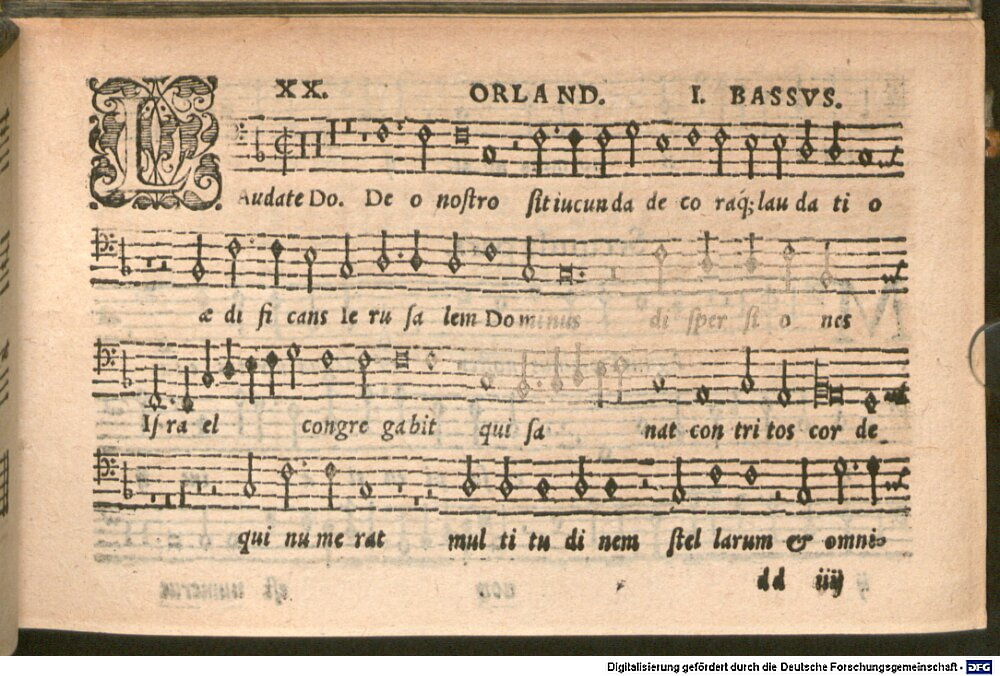 XX. ORLAND. I. BASSVS.
LAudate Do. De o noſtro ſit iucun da de co raq́; lau da ti o
æ di fi cans Ie ru ſa lem Do minus di ſper ſi o nes
Iſ ra el congre gabit qui ſa nat con tri tos cor de
qui nu me rat mul ti tu di nem ſtel larum & omni-
dd iiij
Digitalisierung gefördert durch die Deutsche Forschungsgemeinschaft - DFG